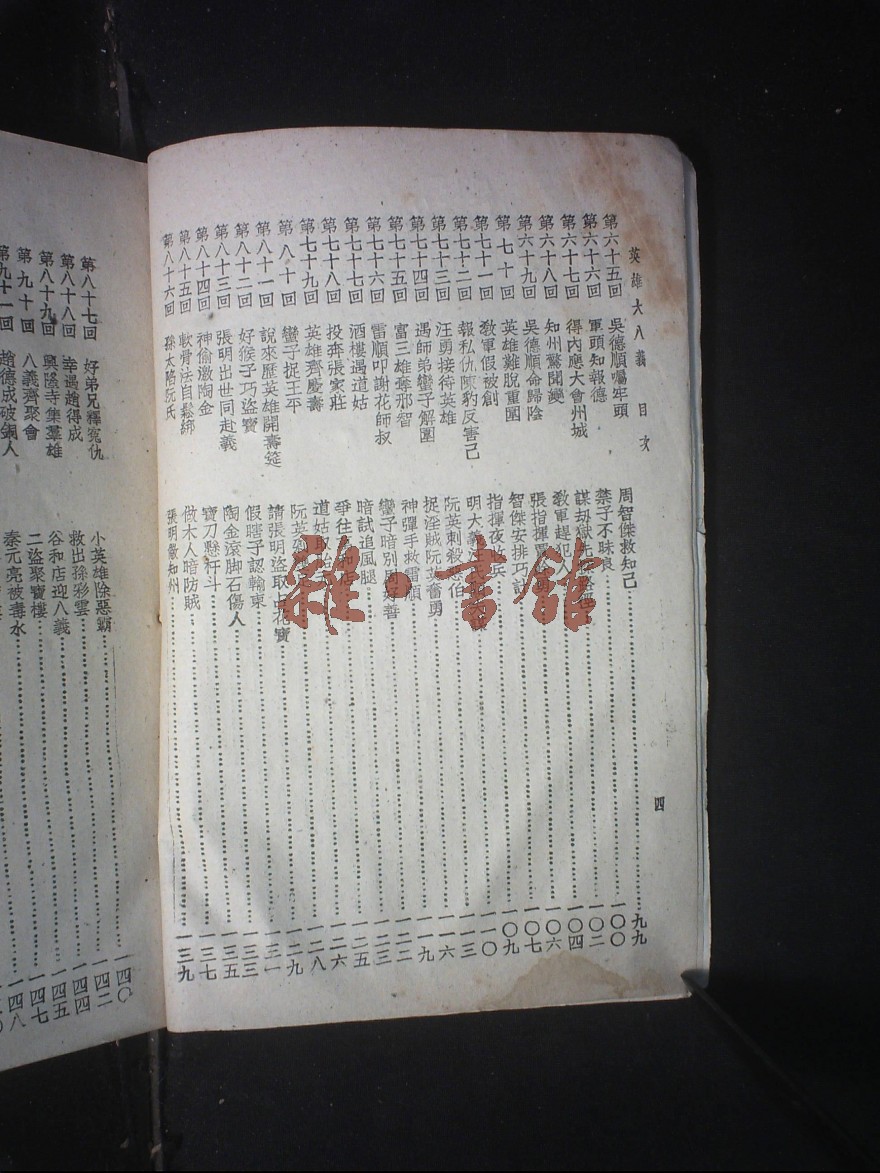 英雄大八義 目次 四
第六十五回 吳德順囑牢頭 周智傑救知己 九九
第六十六回 軍頭知報德 禁子不昧良 一〇〇
第六十七回 得內應大會州城 謀刼獄先 一〇二
第六十八回 知州驚聞變 教軍趕犯人 一〇四
第六十九回 吳德順命歸陰 張指揮 一〇六
第七十回 英雄難脫重圍 智傑安排巧計 一〇七
第七十一回 教軍假被創 指揮夜收兵 一〇九
第七十二回 報私仇陳豹反害己 明大義汪 一一〇
第七十三回 汪勇接待英雄 阮英刺殺惡伯 一一三
第七十四回 遇師弟蠻子解圍 捉淫賊阮英奮勇 一一六
第七十五回 富三雄奪邪智 神彈手救雷順 一一九
第七十六回 雷順叩謝花師叔 蠻子暗別周好善 一二二
第七十七回 酒樓遇道姑 暗試追風腿 一二三
第七十八回 投奔張家莊 爭往和店 一二五
第七十九回 英雄齊慶壽 道姑取 一二六
第八十回 蠻子捉王平 阮英 一二八
第八十一回 說來歷英雄開壽筵 請張明盜取花寶 一二九
第八十二回 好猴子巧盜寶 假瞎子認輸東 一三一
第八十三回 張明出世同赴義 陶金滾脚石傷人 一三三
第八十四回 神偷激陶金 寶刀懸杆斗 一三五
第八十五回 軟骨法自鬆綁 做木人暗防賊 一三七
第八十六回 孫太陷阮氏 張明儆知州 一三九
第八十七回 好弟兄釋冤仇 小英雄除惡霸 一四〇
第八十八回 幸遇趙得成 救出孫彩雲 一四二
第八十九回 興隆寺集羣雄 谷和店迎八義 一四四
第九十回 八義齊聚會 二盜聚寶樓 一四五
第九十一回 趙德成破銅人 秦元亮被毒水 一四七
一四八
雜·書館